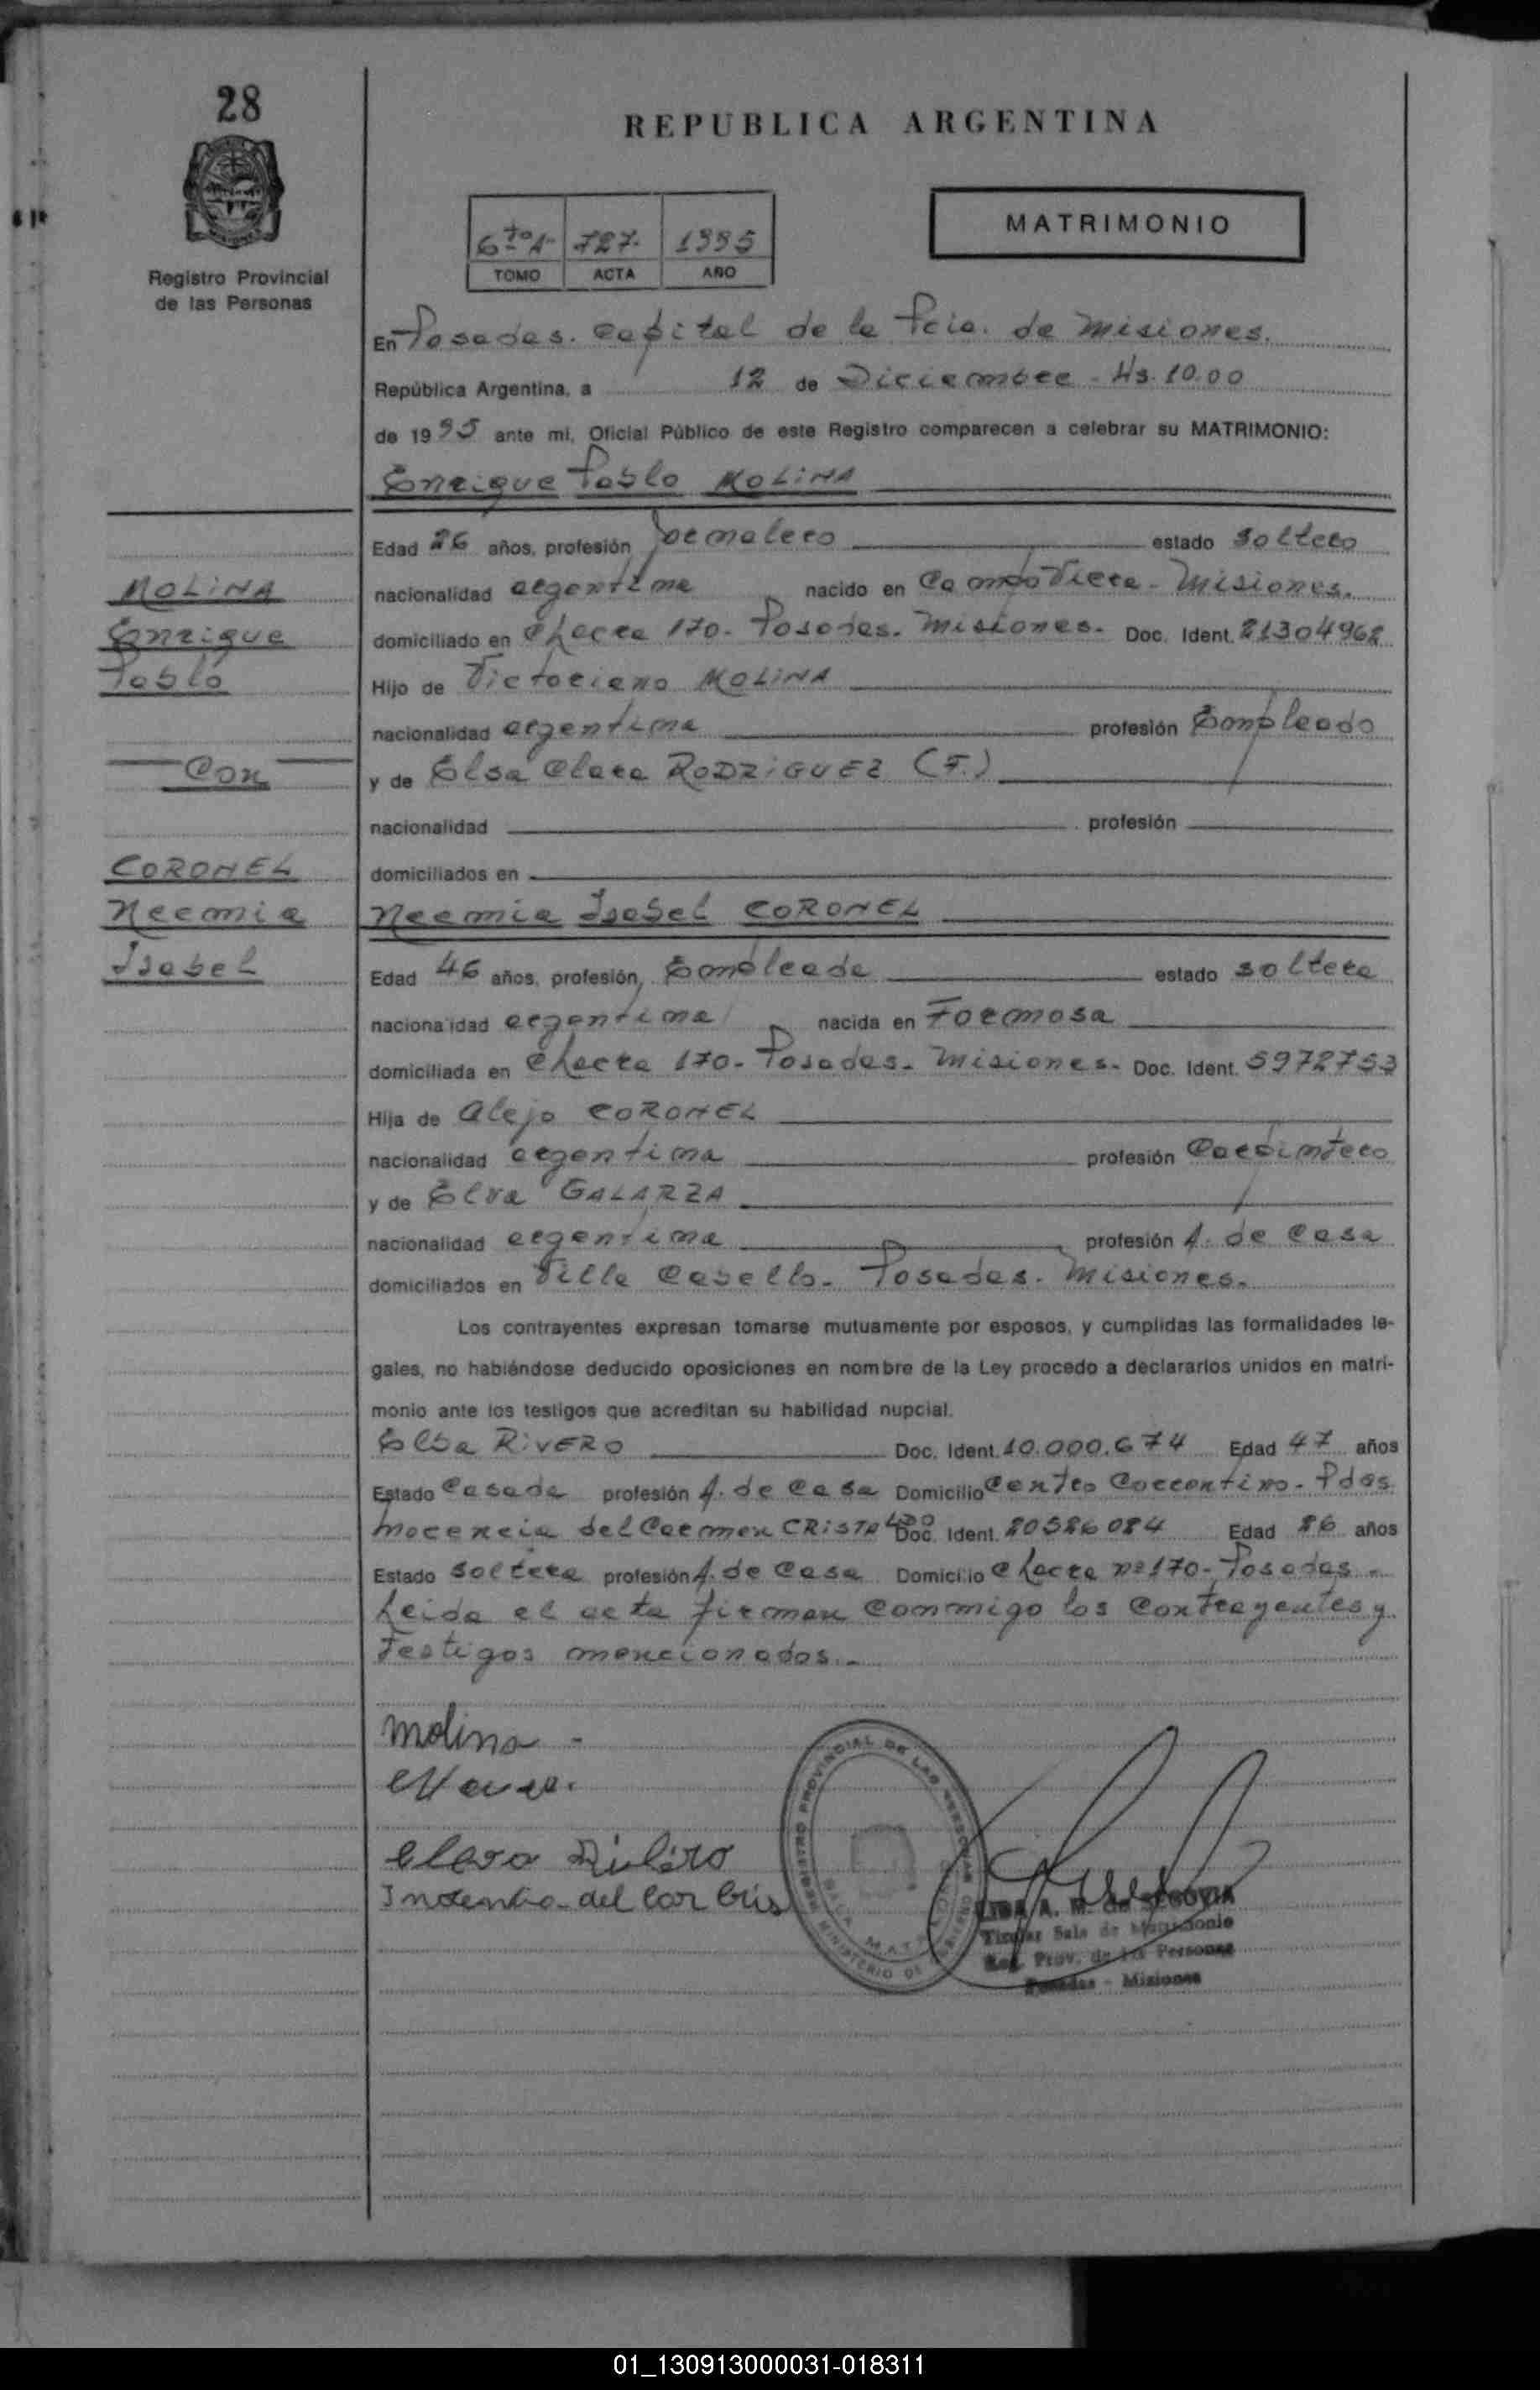 28
REPUBLICA ARGENTINA
MATRIMONIO
6to A 727. 1995
TOMO ACTA AÑO
Registro Provincial
de las Personas
En Posadas. Capital de la Pcia. de Misiones.
República Argentina, a 12 de Diciembre - Hs. 10.00
de 1995 ante mi, Oficial Público de este Registro comparecen a celebrar su MATRIMONIO:
Enrique Pablo MOLINA
Edad 26 años, profesión Jornalero estado soltero
MOLINA
nacionalidad argentina nacido en Campo Viera - Misiones.
Enrique
domiciliado en Chacra 170- Posadas. Misiones. Doc. Ident. 21304962
Pablo
Hijo de Victoriano MOLINA
nacionalidad argentina profesión Empleado
Con
y de Elsa Clara RODRIGUEZ (F.)
nacionalidad profesión
CORONEL
domiciliados en
Neemia
Neemia Isabel CORONEL
Isabel
Edad 46 años, profesión, Empleada estado soltera
nacionalidad argentina nacida en Formosa
domiciliada en Chacra 170- Posadas. Misiones. Doc. Ident. 5972753
Hija de Alejo CORONEL
nacionalidad argentina profesión Carpintero
y de Elva GALARZA
nacionalidad argentina profesión A. de Casa
domiciliados en Villa Cabello. Posadas. Misiones.
Los contrayentes expresan tomarse mutuamente por esposos, y cumplidas las formalidades le-
gales, no habiéndose deducido oposiciones en nombre de la Ley procedo a declararlos unidos en matri-
monio ante los testigos que acreditan su habilidad nupcial.
RIVERO Doc. Ident. 10.000.674 Edad 47 años
Estado Casada profesión A. de Casa Domicilio Centro Correntino. Pdas
del Carmen CRISTALDO Doc. Ident. 20526084 Edad 26 años
Estado soltera profesión A. de Casa Domicilio Chacra nº 170- Posadas.
Leida el acta firman conmigo los contrayentes y
testigos mencionados.-
Molina -
del Car Cris
REGISTRO PROVINCIAL DE LAS PERSONAS
MINISTERIO DE GOBIERNO
A. M. de SEGOVIA
Titular Sala de Matrimonio
Reg. Prov. de las Personas
Posadas - Misiones
01_130913000031-018311